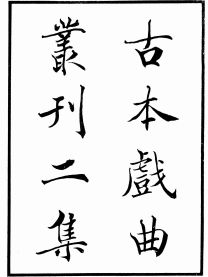 古本戲曲
叢刊二集